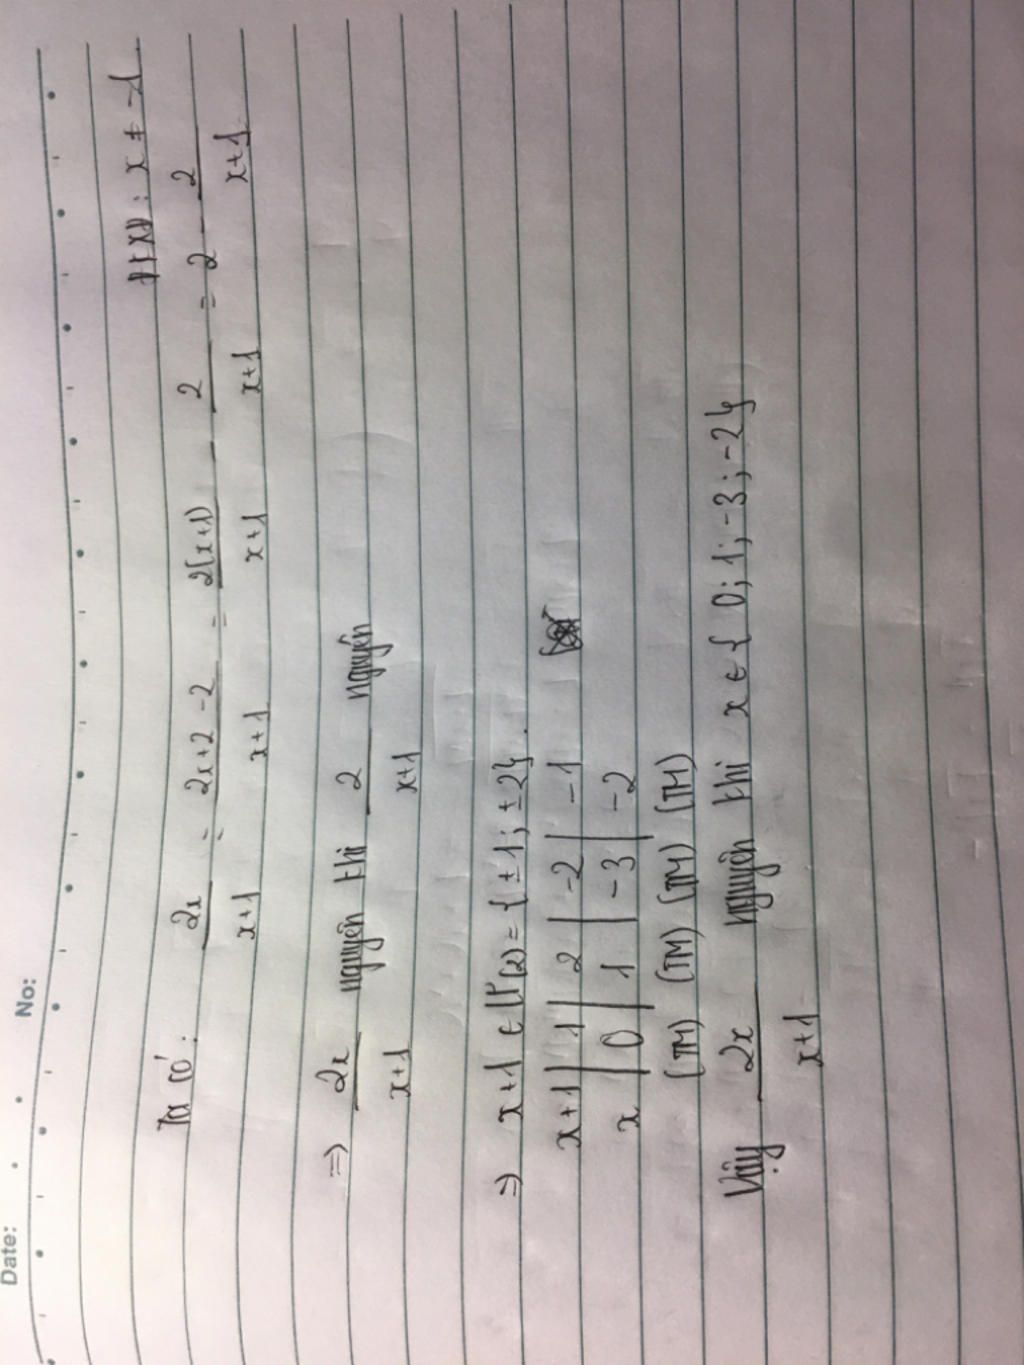 Date: No:
ĐKXĐ: x ≠ -1
Ta có: 2x/x+1 = 2x+2-2/x+1 = 2(x+1)/x+1 - 2/x+1 = 2 - 2/x+1
⇒ 2x/x+1 nguyên khi 2/x+1 nguyên
⇒ x+1 ∈ Ư(2) = {±1; ±2}.
x+1 | 1 | 2 | -2 | -1
x | 0 | 1 | -3 | -2
(TM) (TM) (TM) (TM)
Vậy 2x/x+1 nguyên khi x ∈ { 0; 1; -3; -2}